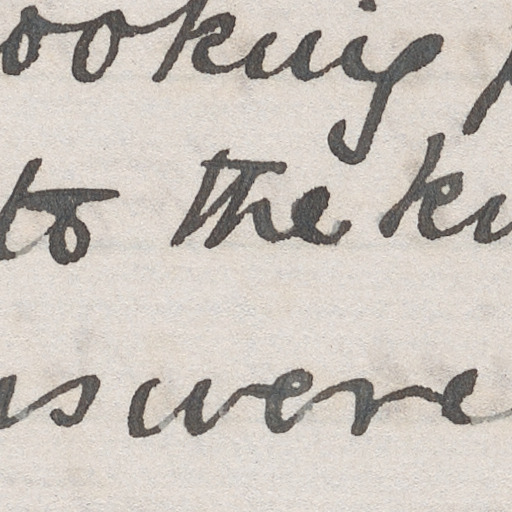 ooking
to the
swere